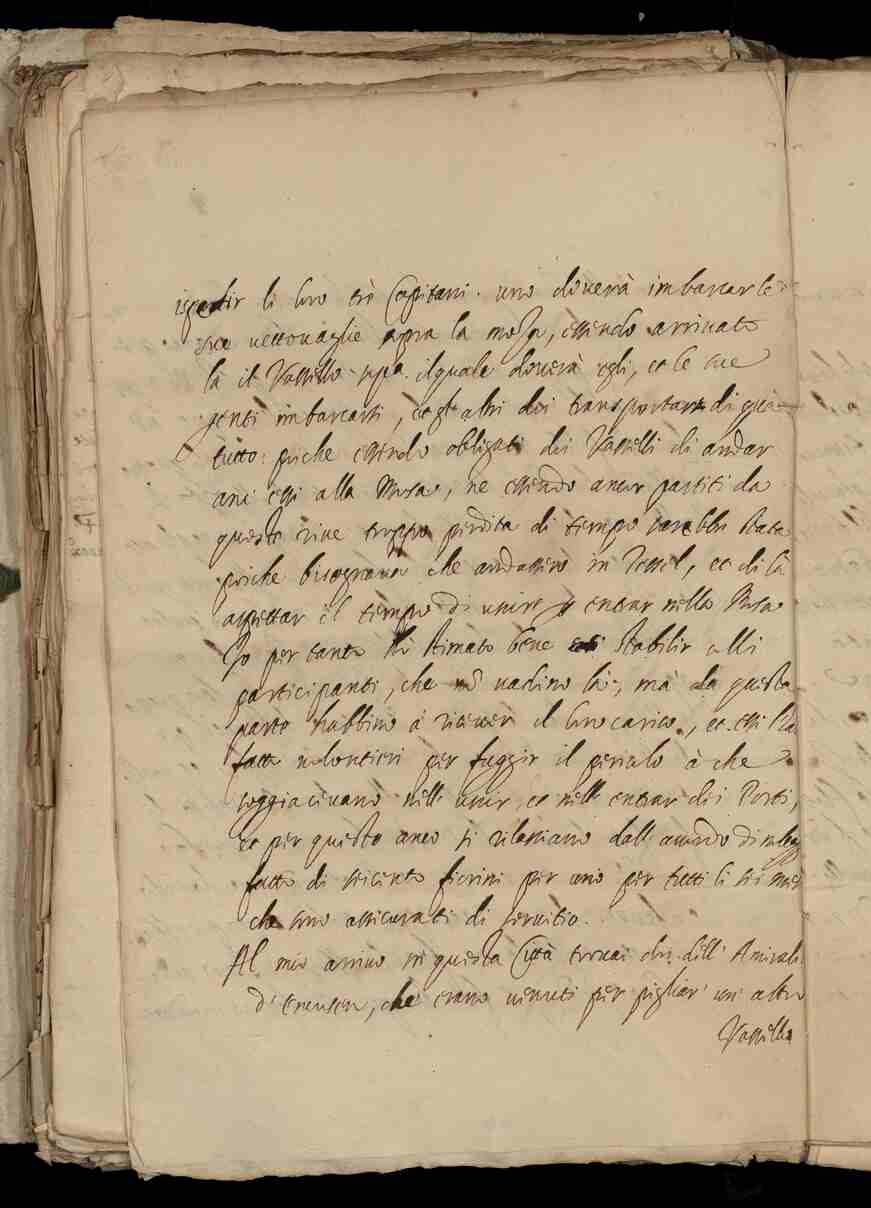 ispedir li loro trè Capitani. uno doverà imbarcar le
sue vettovaglie sopra la mosa, essendo arrivato
là il Vassello sopra ilquale doverà egli, et le sue
genti imbarcarsi, et gl'altri doi transportar di quà
tutto: poiche essendo obligati doi Vasselli di andar
anc' essi alla Mosa, ne essendo ancor partiti da
queste rive troppo perdita di tempo sarebbe stata
poiche bisognava che andassero in Tessel, et di là
aspettar il tempo di uscir et entrar nella Mosa
Io per tanto hò stimato bene stabilir alli
participanti, che nō vadino là, mà da questa
parte habbino à ricever il loro carico, et essi l'hā
fatto volontieri per fuggir il pericolo à che
soggiacevano nell' uscir, et nell' entrar dei Porti,
et per questo anco si rilassano dall' accordo di
fatto di seicento fiorini per uno per tutti li sei mesi
che sono assicurati di servitio.
Al mio arrivo in questa Città trovai dell' Amirali
d' Encusen, che erano venuti per pigliar un altro
Vassello